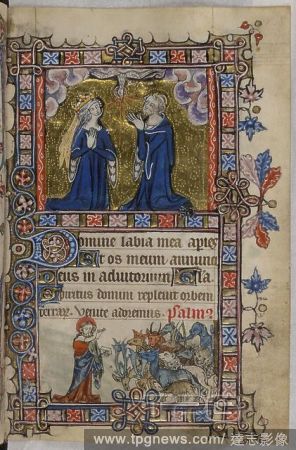 Domine labia mea aper
Et os meum annunc
Deus in adiutorium. Gla
Spiritus domini replevit orbem
terrar. Venite adoremus. psalm
www.tpgnews.com/ 達志影像